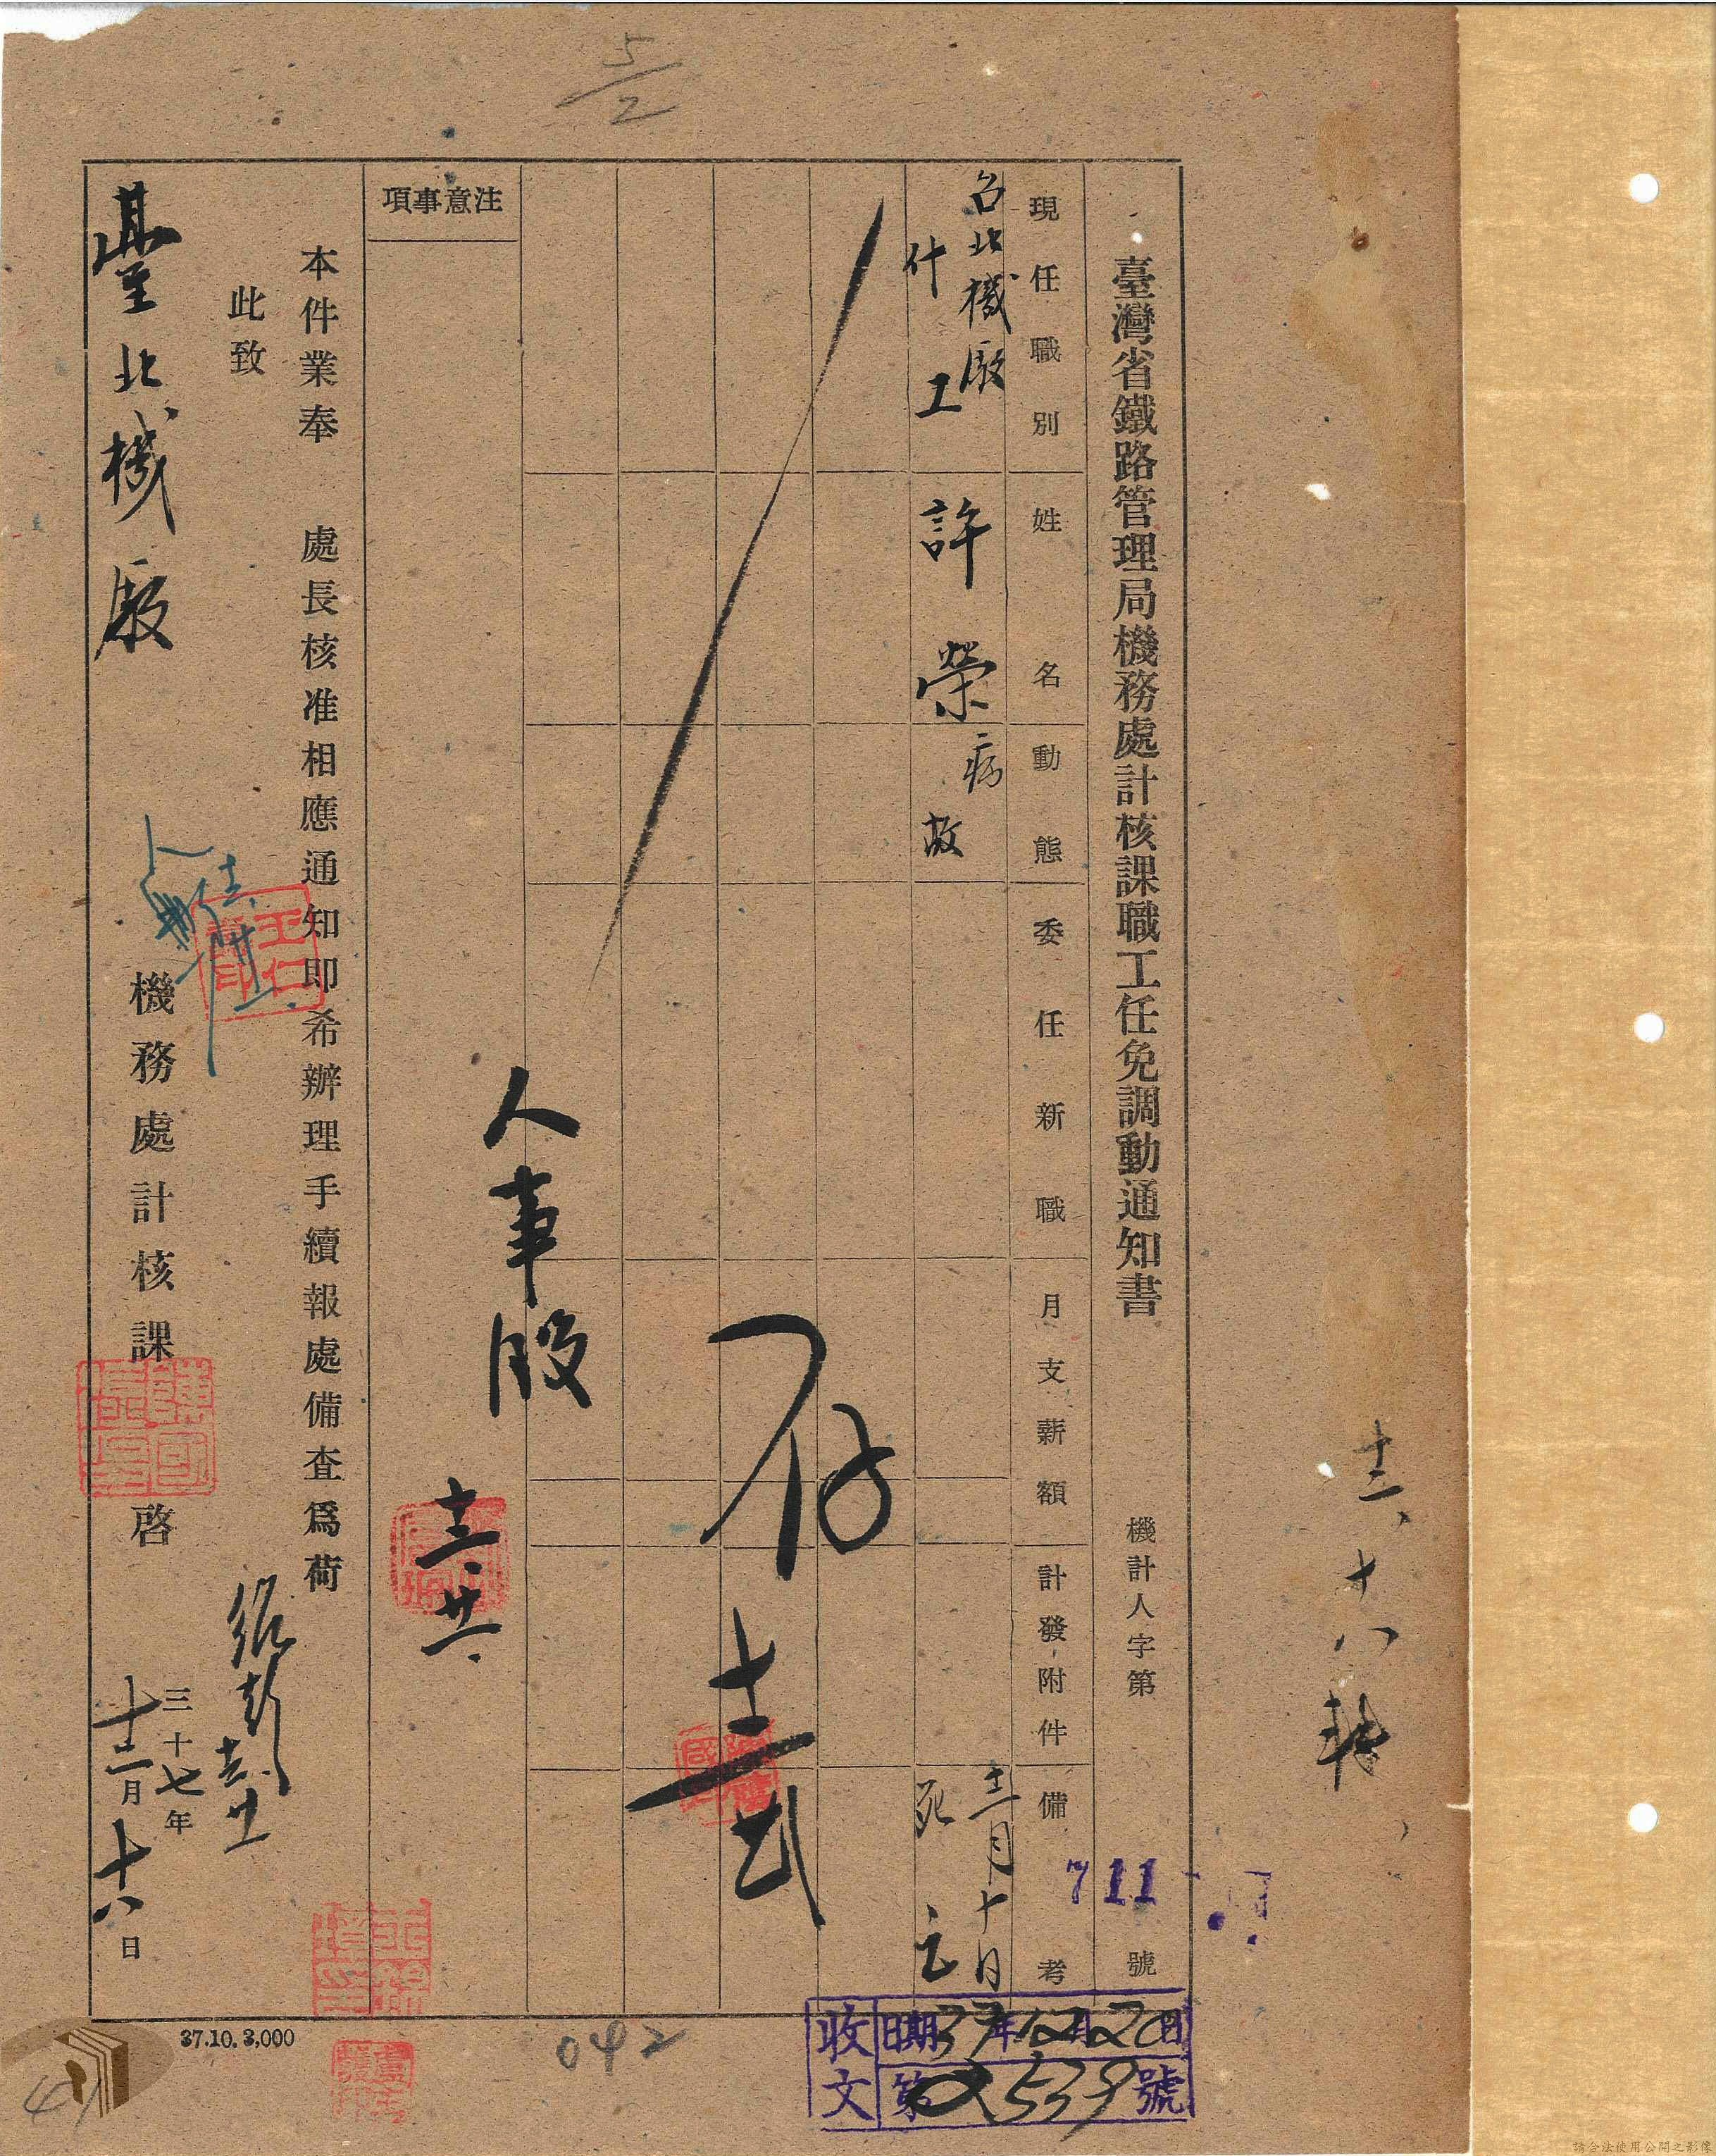 5/2
十二、十八轉
臺灣省鐵路管理局機務處計核課職工任免調動通知書
機計人字第 711 號
現任職別
姓名
動態
委任新職
月支薪額
計發附件
備考
台北機廠
什工
許榮
病故
十二月十日
死亡
存
人事股
十二、廿一、
注意事項
本件業奉 處長核准相應通知即希辦理手續報處備查為荷
此致
臺北機廠
機務處計核課 啓
三十七年
十二月十八日
37.10.3,000
042
收文
日期37年12月20日
第02539號
請合法使用公開之影像